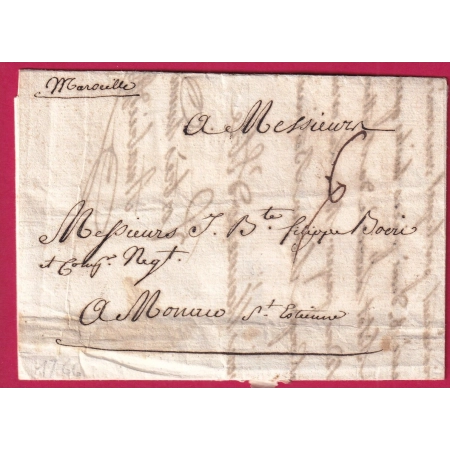 Marseille
A Messieurs
6
Messieurs J. Bte filippe Boeri
et Compe. Negt.
A Monaco St. Estienne